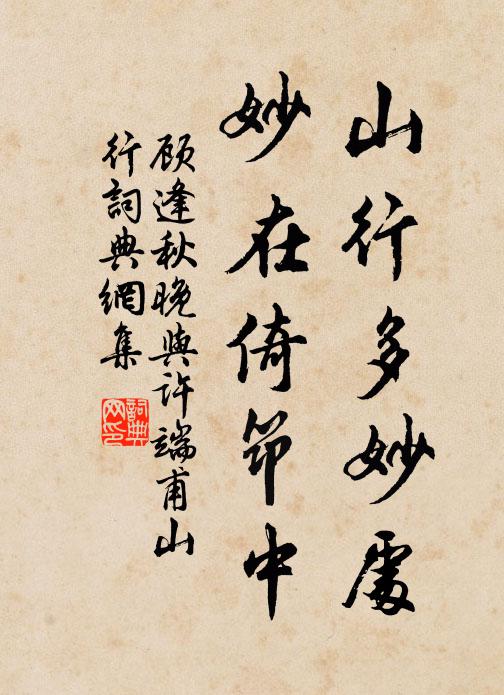 山行多妙處
妙在倚筇中
顾逢秋晚與许端甫山
行詞典網集
詞典网印